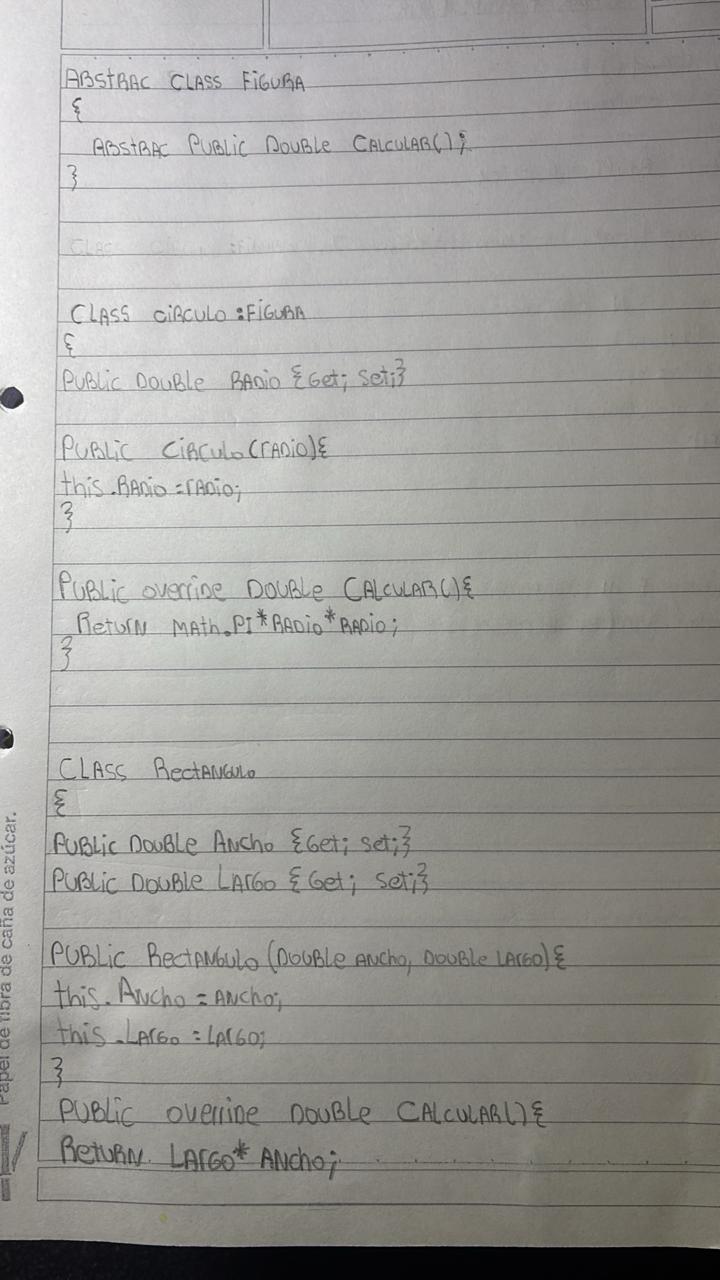 ABStRAC CLASS FiGURA
{
ABStRAC PUBLic DOUBLe CALCULAR();
}
CLASS ciRCULO :FiGURA
{
PUBLic DOUBLe RADio {Get; Set;}
PUBLic CiRCULo(rADio){
this.RADio =rADio;
}
PUBLic override DOUBLe CALCULAR(){
Return MAth.PI*RADio*RADio;
}
CLASS RectANGULo
{
PUBLic DOUBLe ANcho {Get; Set;}
PUBLic DOUBLe LArGo {Get; Set;}
PUBLic RectANGULo (DOUBLe ANcho, DOUBLe LArGO){
this.ANcho = ANcho;
this.LArGo = LArGO;
}
PUBLic override DOUBLe CALCULAR(){
RetURN LArGO* ANcho;
Papel de fibra de caña de azúcar.